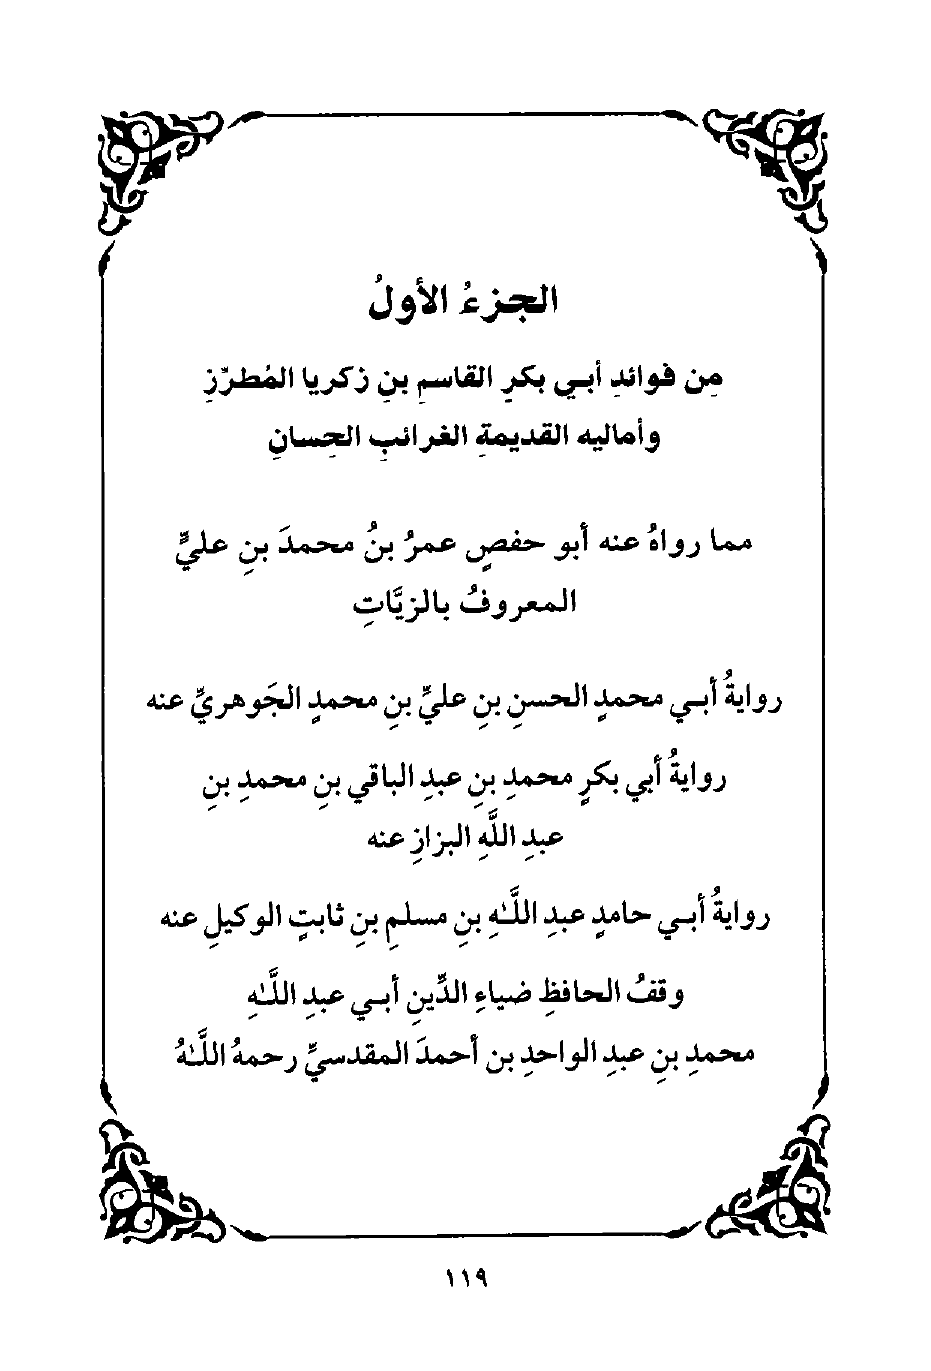 الجزءُ الأولُ
مِن فوائدِ أبي بكرِ القاسمِ بنِ زكريا المُطرِّزِ
وأماليه القديمةِ الغرائبِ الحِسانِ
مما رواهُ عنه أبو حفصٍ عمرُ بنُ محمدَ بنِ عليٍّ
المعروفُ بالزيَّاتِ
روايةُ أبي محمدٍ الحسنِ بنِ عليِّ بنِ محمدٍ الجَوهريِّ عنه
روايةُ أبي بكرٍ محمدِ بنِ عبدِ الباقي بنِ محمدِ بنِ
عبدِ اللَّهِ البزازِ عنه
روايةُ أبي حامدٍ عبدِ اللَّهِ بنِ مسلمِ بنِ ثابتٍ الوكيلِ عنه
وقفُ الحافظِ ضياءِ الدِّينِ أبي عبدِ اللَّهِ
محمدِ بنِ عبدِ الواحدِ بن أحمدَ المقدسيِّ رحمهُ اللَّهُ
١١٩